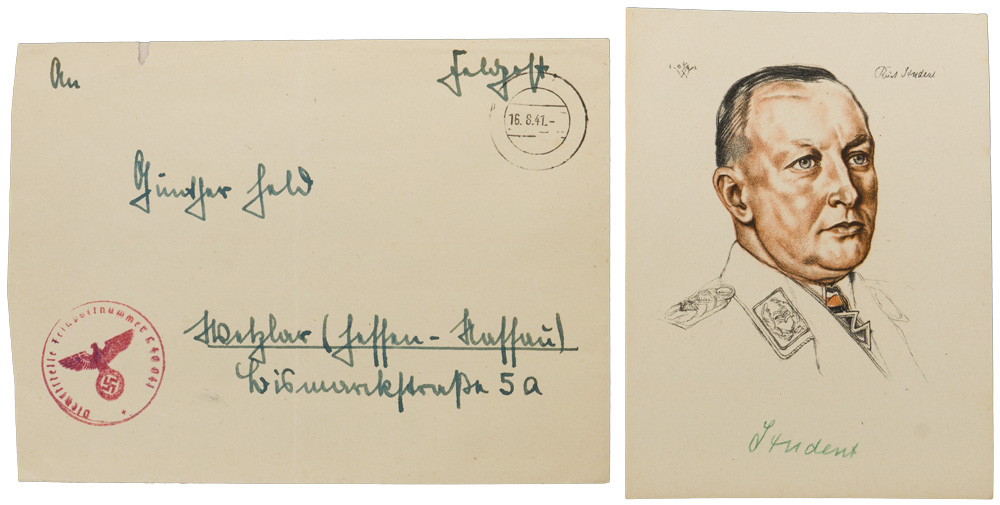 An
Feldpost.
16.8.41.-
Günther Held
Wetzlar (Hessen-Nassau)
Bismarckstraße 5a
Dienststelle Feldpostnummer
Kurt Student
Student